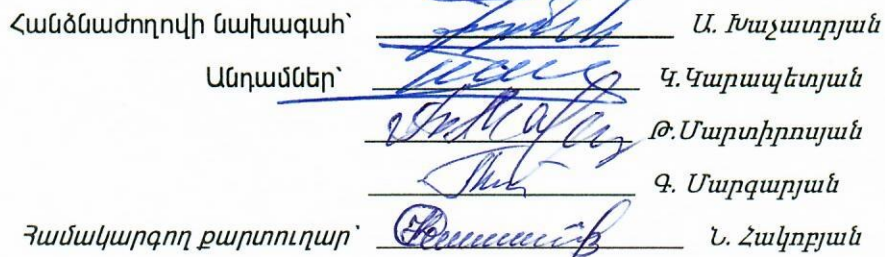 Հանձնաժողովի նախագահ՝ Ա. Խաչատրյան
Անդամներ՝ Կ.Կարապետյան
Թ.Մարտիրոսյան
Գ. Մարգարյան
Համակարգող քարտուղար՝ Ն. Հակոբյան